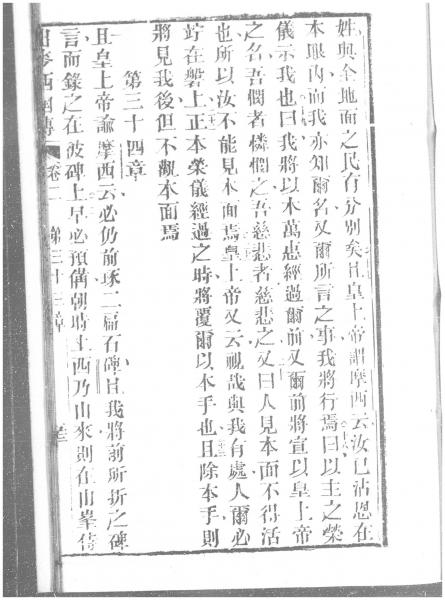 姓與全地面之民有分別矣且皇上帝謂摩西云汝已沾恩在
本眼內而我亦知爾名又爾所言之事我將行焉曰以主之榮
儀示我也曰我將以本萬惠經過爾前又爾前將宣以皇上帝
之名吾憫者憐憫之吾慈悲者慈悲之又曰人見本面不得活
也所以汝不能見本面焉皇上帝又云視哉與我有處人爾必
竚在磐上正本榮儀經過之時將覆爾以本手也且除本手則
將見我後但不觀本面焉
第三十四章
且皇上帝諭摩西云必仍前琢二扁石碑且我將前所折之碑
言而錄之在彼碑上早必預備朝時上西乃山來則在山峯侍
卷二 第三十三章